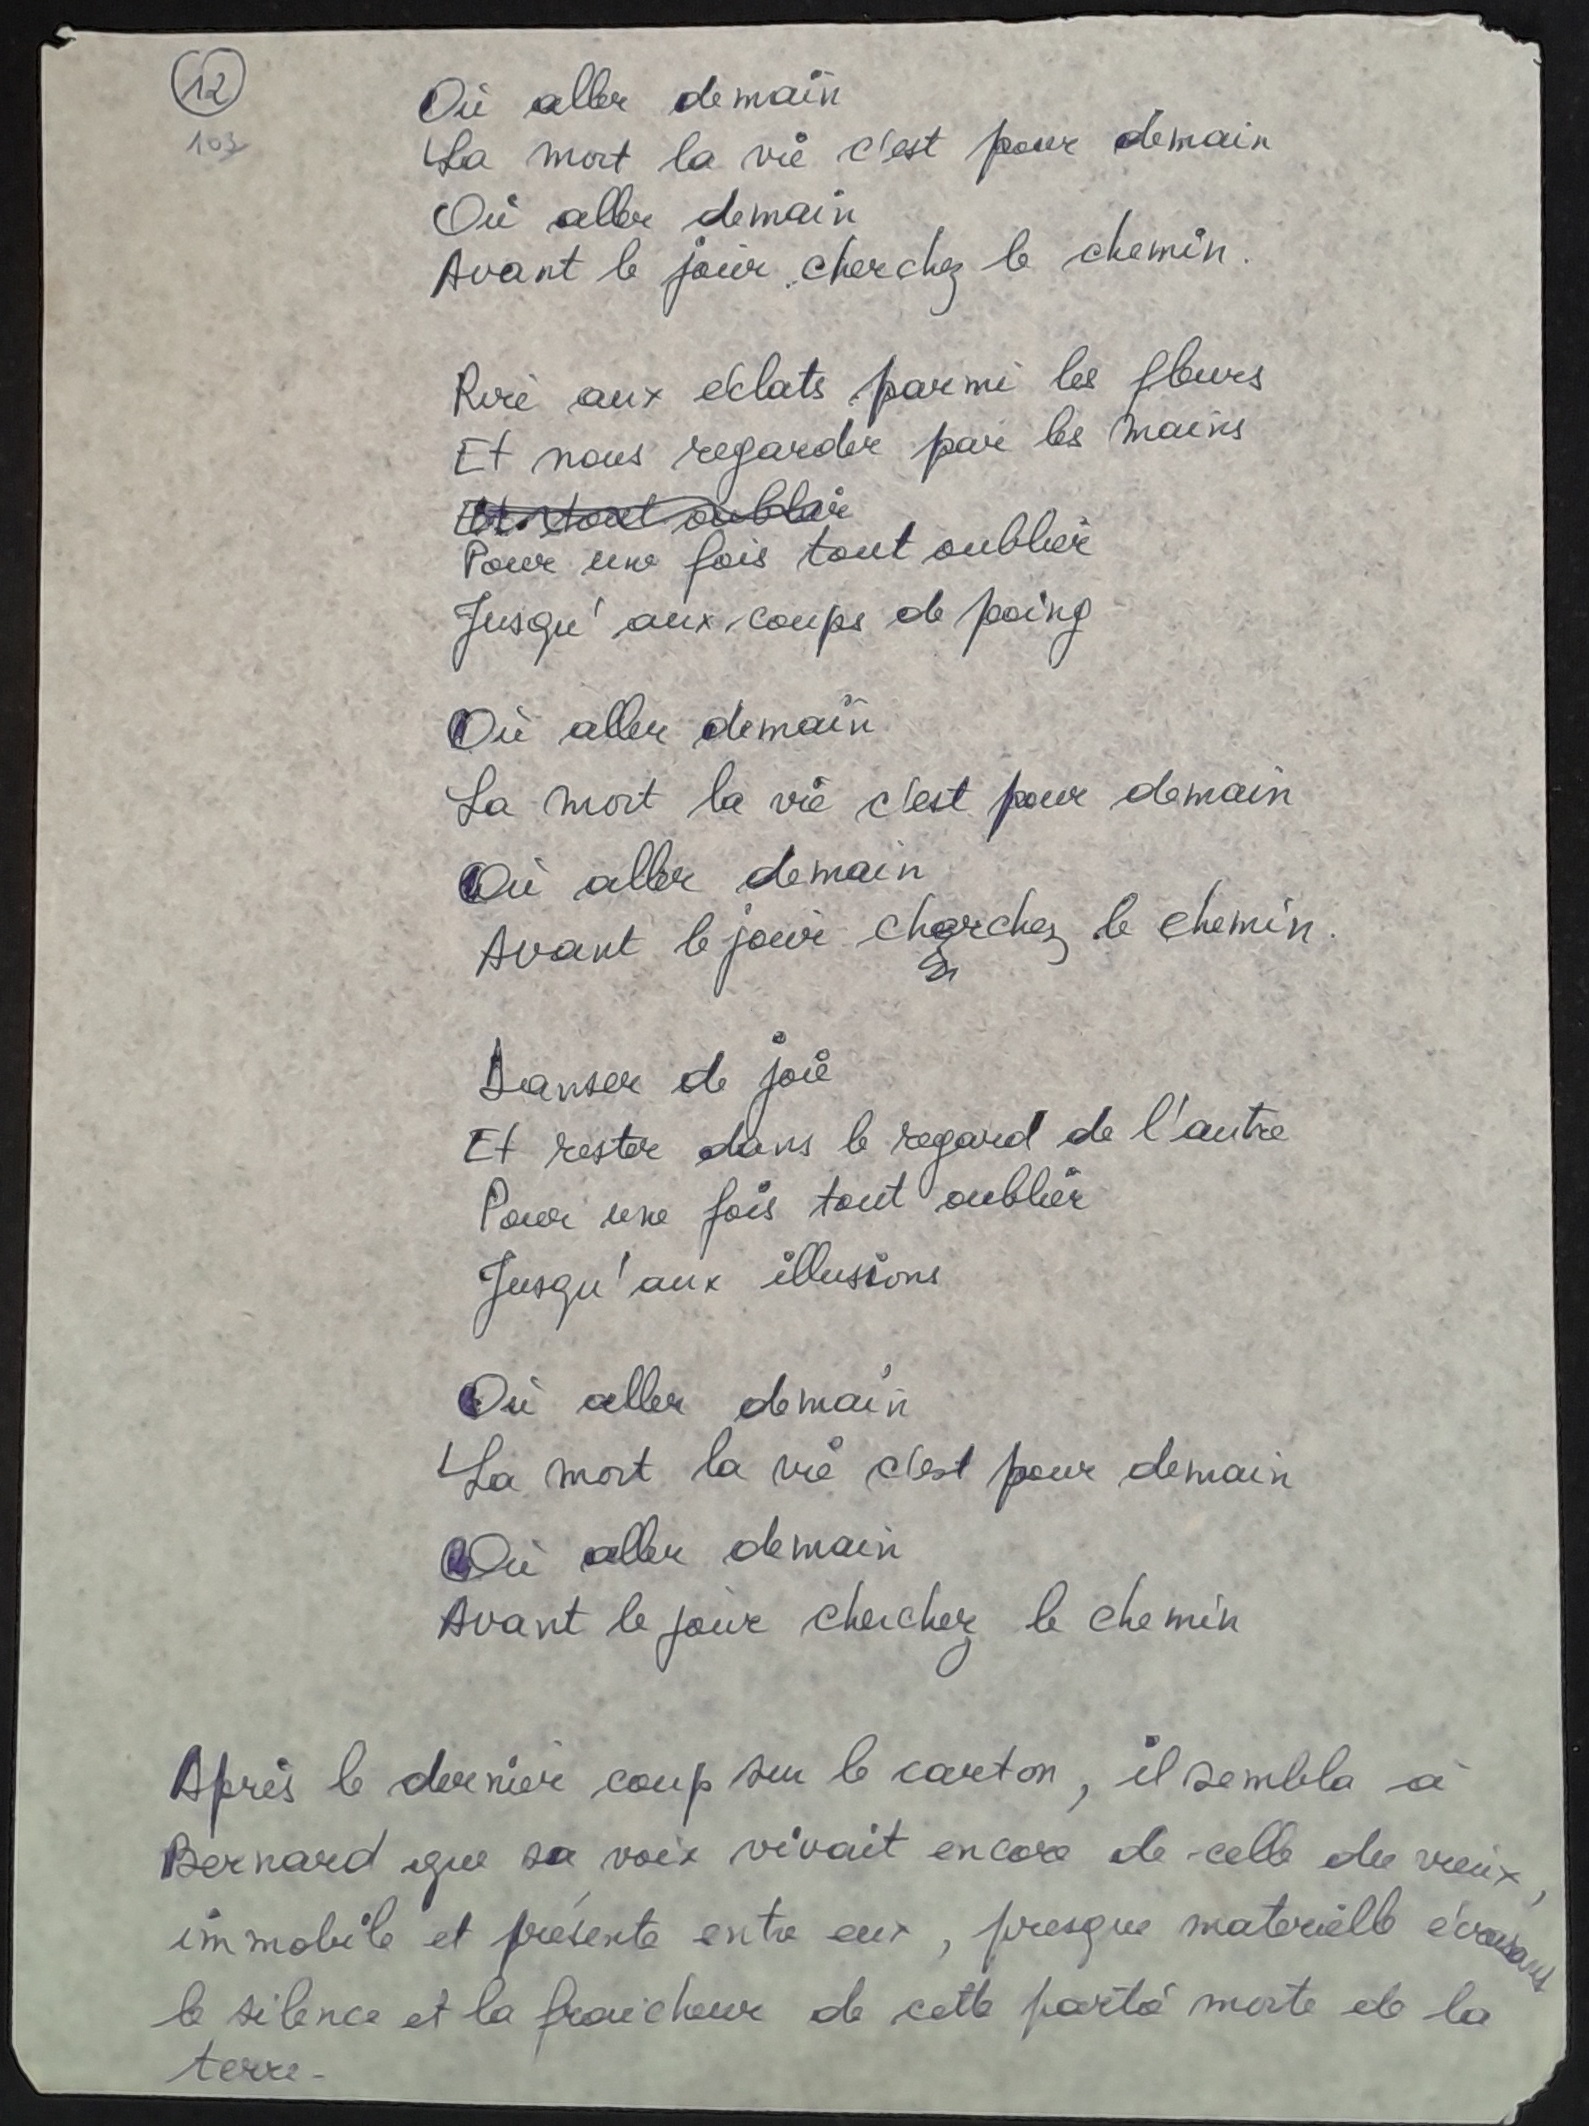 12
103
Où aller demain
La mort la vie c'est pour demain
Où aller demain
Avant le jour cherchez le chemin.
Rire aux éclats parmi les fleurs
Et nous regarder par les mains
Et tout oublier
Pour une fois tout oublier
Jusqu'aux coups de poing
Où aller demain
La mort la vie c'est pour demain
Où aller demain
Avant le jour cherchez le chemin.
Danser de joie
Et rester dans le regard de l'autre
Pour une fois tout oublier
Jusqu'aux illusions
Où aller demain
La mort la vie c'est pour demain
Où aller demain
Avant le jour cherchez le chemin
Après le dernier coup sur le carton, il sembla à
Bernard que sa voix vivait encore de celle du vieux,
immobile et présente entre eux, presque materielle écrasant
le silence et la fraicheur de cette partie morte de la
terre-